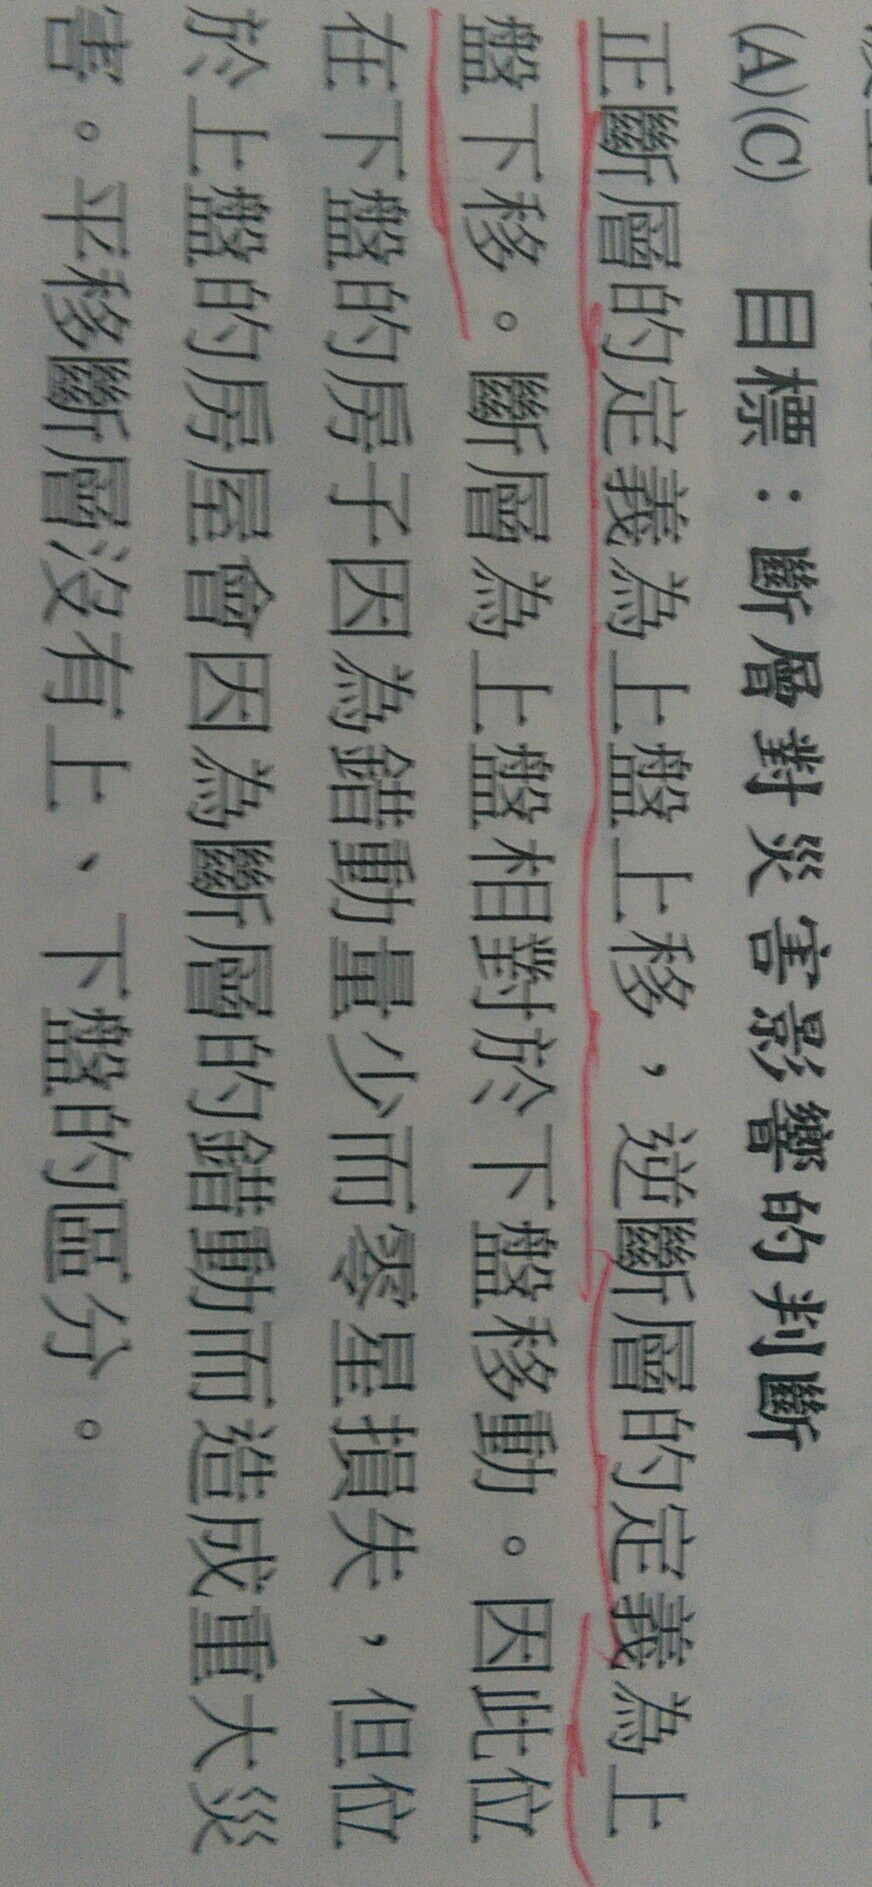 (A)(C) 目標：斷層對災害影響的判斷
正斷層的定義為上盤上移，逆斷層的定義為上
盤下移。斷層為上盤相對於下盤移動。因此位
在下盤的房子因為錯動量少而零星損失，但位
於上盤的房屋會因為斷層的錯動而造成重大災
害。平移斷層沒有上、下盤的區分。